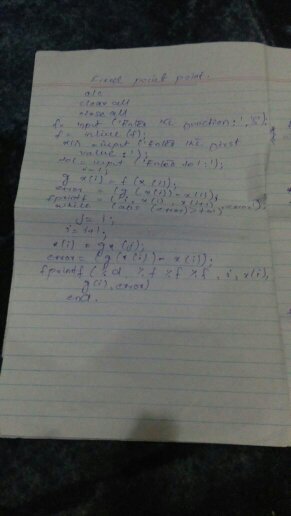 Fixed point point.
clc
clear all
close all
f = input ('Enter the function:', 's');
f = inline (f);
x(1) = input ('Enter the first
value:');
tol = input ('Enter tol:');
i=1;
g x(i) = f(x(i));
error = (g(x(i)) - x(i));
fprintf
while (abs (error) > tol)
j = i;
i = i+1;
x(i) = gx(j);
error = (g(x(i)) - x(i));
fprintf ('%d %f %f %f', i, x(i),
g(i), error)
end.